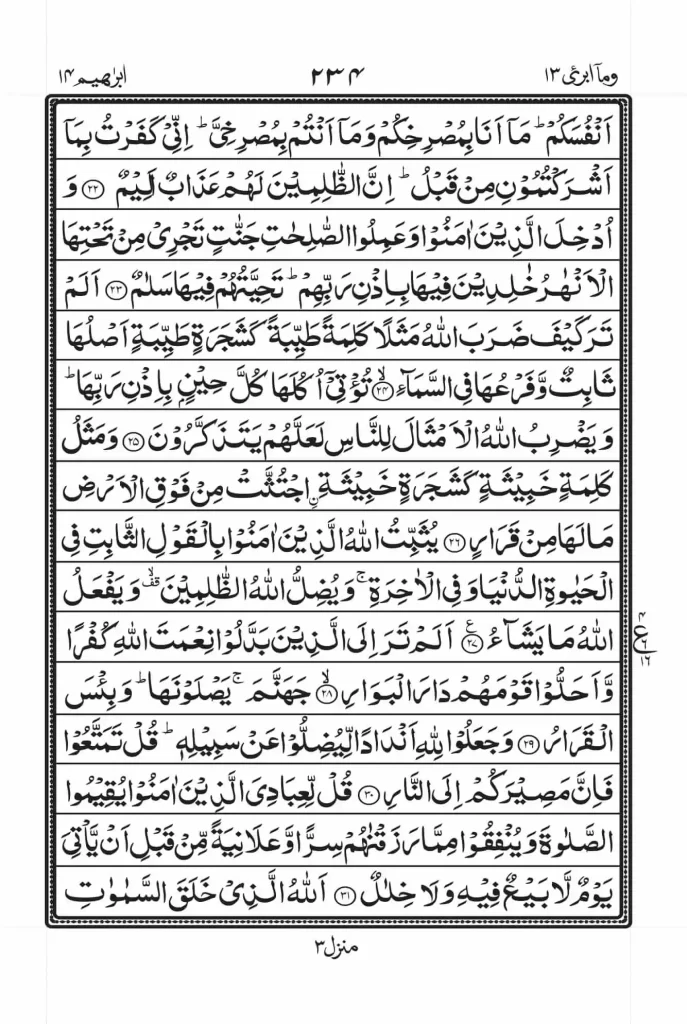 وماۤ ابرئ ١٣ ٢٣٤ ابرٰهيم ١٤
اَنْفُسَكُمْ ؕ مَاۤ اَنَا بِمُصْرِخِكُمْ وَمَاۤ اَنْتُمْ بِمُصْرِخِيَّ ؕ اِنِّيْ كَفَرْتُ بِمَاۤ
اَشْرَكْتُمُوْنِ مِنْ قَبْلُ ؕ اِنَّ الظّٰلِمِيْنَ لَهُمْ عَذَابٌ اَلِيْمٌ ﴿٢٢﴾ وَ
اُدْخِلَ الَّذِيْنَ اٰمَنُوْا وَعَمِلُوا الصّٰلِحٰتِ جَنّٰتٍ تَجْرِيْ مِنْ تَحْتِهَا
الْاَنْهٰرُ خٰلِدِيْنَ فِيْهَا بِاِذْنِ رَبِّهِمْ ؕ تَحِيَّتُهُمْ فِيْهَا سَلٰمٌ ﴿٢٣﴾ اَلَمْ
تَرَ كَيْفَ ضَرَبَ اللّٰهُ مَثَلًا كَلِمَةً طَيِّبَةً كَشَجَرَةٍ طَيِّبَةٍ اَصْلُهَا
ثَابِتٌ وَّفَرْعُهَا فِي السَّمَآءِ ۙ﴿٢٤﴾ تُؤْتِيْۤ اُكُلَهَا كُلَّ حِيْنٍۭ بِاِذْنِ رَبِّهَا ؕ
وَيَضْرِبُ اللّٰهُ الْاَمْثَالَ لِلنَّاسِ لَعَلَّهُمْ يَتَذَكَّرُوْنَ ﴿٢٥﴾ وَمَثَلُ
كَلِمَةٍ خَبِيْثَةٍ كَشَجَرَةٍ خَبِيْثَةِ ِ۟اجْتُثَّتْ مِنْ فَوْقِ الْاَرْضِ
مَا لَهَا مِنْ قَرَارٍ ﴿٢٦﴾ يُثَبِّتُ اللّٰهُ الَّذِيْنَ اٰمَنُوْا بِالْقَوْلِ الثَّابِتِ فِي
الْحَيٰوةِ الدُّنْيَا وَفِي الْاٰخِرَةِ ۚ وَيُضِلُّ اللّٰهُ الظّٰلِمِيْنَ ۙ۫ وَيَفْعَلُ
اللّٰهُ مَا يَشَآءُ ﴿٢٧﴾ ع اَلَمْ تَرَ اِلَى الَّذِيْنَ بَدَّلُوْا نِعْمَتَ اللّٰهِ كُفْرًا
وَّاَحَلُّوْا قَوْمَهُمْ دَارَ الْبَوَارِ ۙ﴿٢٨﴾ جَهَنَّمَ ۚ يَصْلَوْنَهَا ؕ وَبِئْسَ
الْقَرَارُ ﴿٢٩﴾ وَجَعَلُوْا لِلّٰهِ اَنْدَادًا لِّيُضِلُّوْا عَنْ سَبِيْلِهٖ ؕ قُلْ تَمَتَّعُوْا
فَاِنَّ مَصِيْرَكُمْ اِلَى النَّارِ ﴿٣٠﴾ قُلْ لِّعِبَادِيَ الَّذِيْنَ اٰمَنُوْا يُقِيْمُوا
الصَّلٰوةَ وَيُنْفِقُوْا مِمَّا رَزَقْنٰهُمْ سِرًّا وَّعَلَانِيَةً مِّنْ قَبْلِ اَنْ يَّاْتِيَ
يَوْمٌ لَّا بَيْعٌ فِيْهِ وَلَا خِلٰلٌ ﴿٣١﴾ اَللّٰهُ الَّذِيْ خَلَقَ السَّمٰوٰتِ
منزل ٣